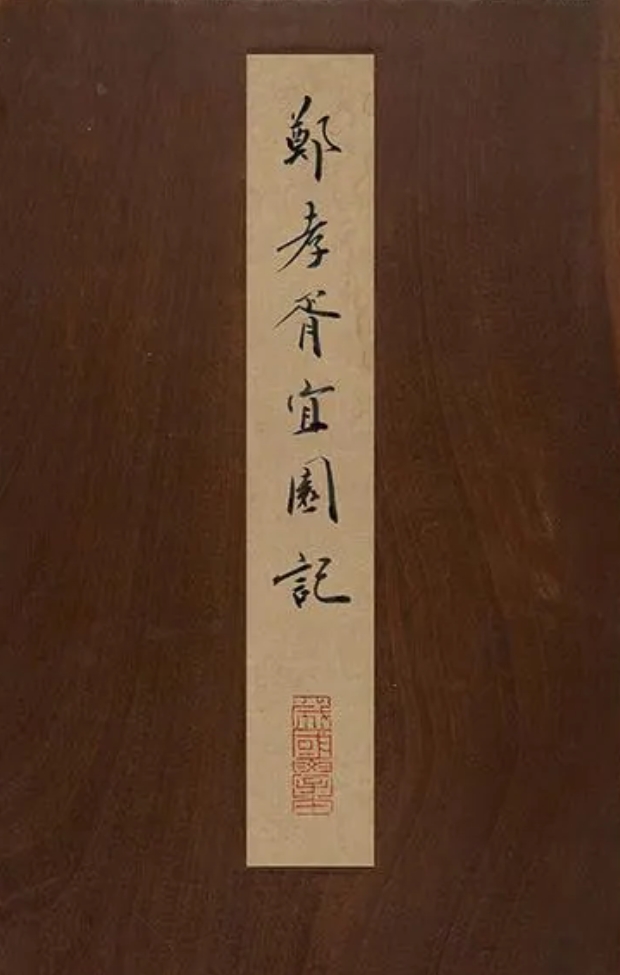 鄭孝胥宜園記